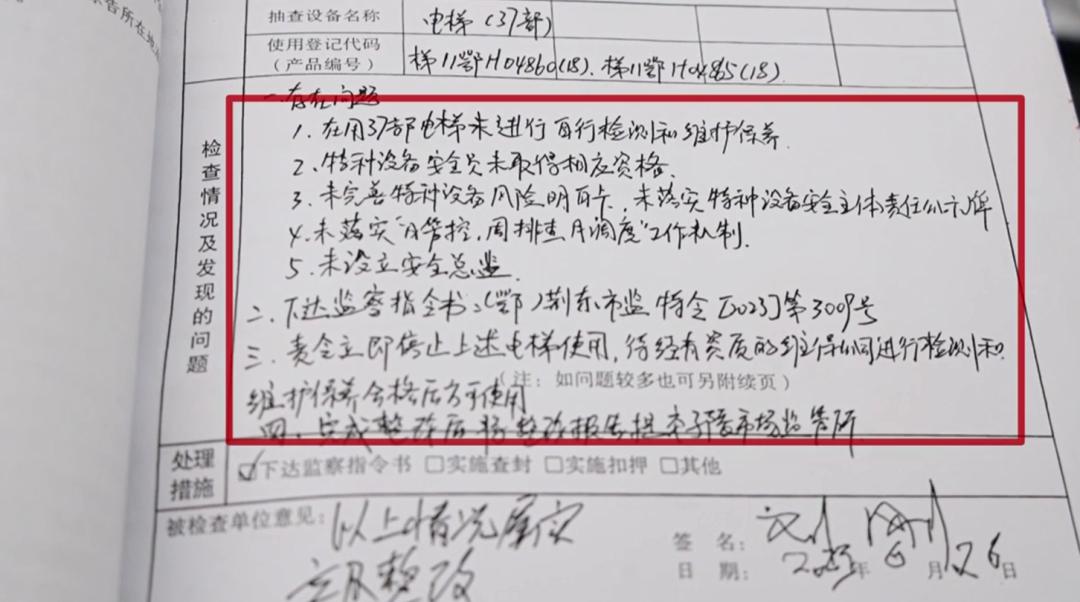 告所在地
抽查设备名称 电梯(37部)
使用登记代码
(产品编号) 梯11鄂H04860(18)、梯11鄂H04865(18)
检查情况及发现的问题
一、存在问题
1、在用37部电梯未进行自行检测和维护保养
2、特种设备安全员未取得相应资格、
3、未完善特种设备风险明白卡,未落实特种设备安全主体责任公示牌
4、未落实“日管控,周排查月调度”工作机制.
5、未设立安全总监
二、下达监察指令书:(鄂)荆东市监特令[2023]第3009号
三、责令立即停止上述电梯使用,待经有资质的维保公司进行检测和
(注:如问题较多也可另附续页)
维护保养合格后方可使用
四、完成整改后将整改报告提交 市场监管所
处理措施 ☑下达监察指令书 □实施查封 □实施扣押 □其他
被检查单位意见: 以上情况属实
立即整改
签 名: 刘
日 期: 2023年6月26日